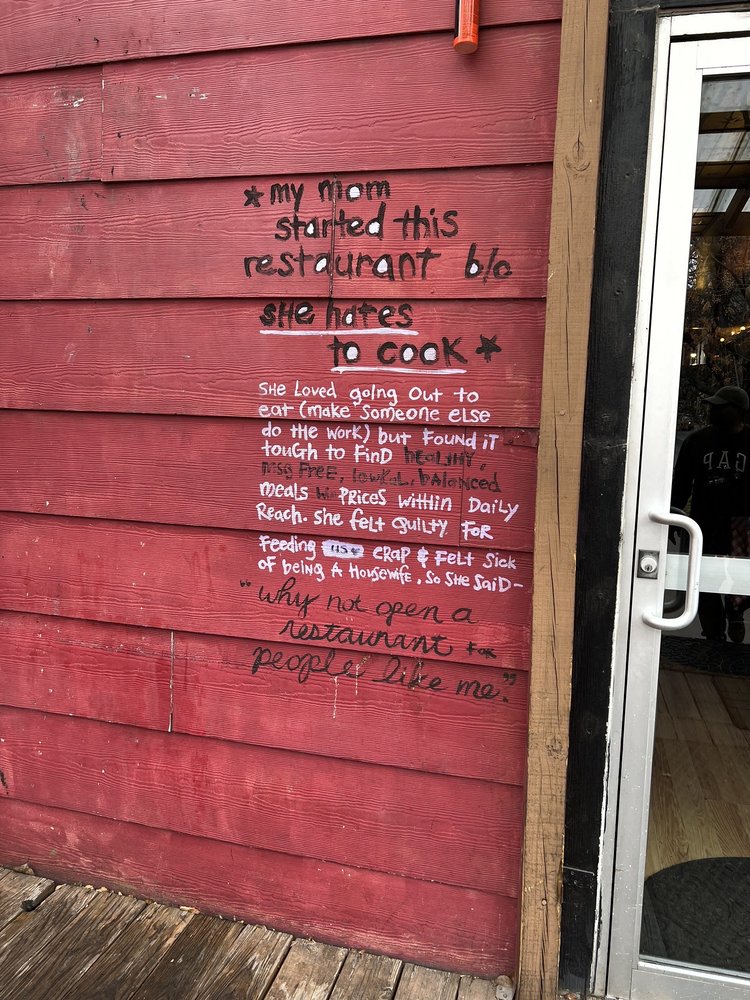 ★ my mom
started this
restaurant b/c
SHE hates
to COOK ★
SHE Loved going Out to
eat (make Someone ELSE
do tHe WORK) but FOUND iT
tOUGH to FinD HEALTHY,
MSG FREE, lowKal, bAlAnced
meals W PRiCES WitHin DaiLy
ReacH. She feLt guiLty FOR
Feeding us CRAP & FELt Sick
OF being A HOusewiFE, SO SHe SaiD-
"why not open a
restaurant FOR
people like me."
GAP